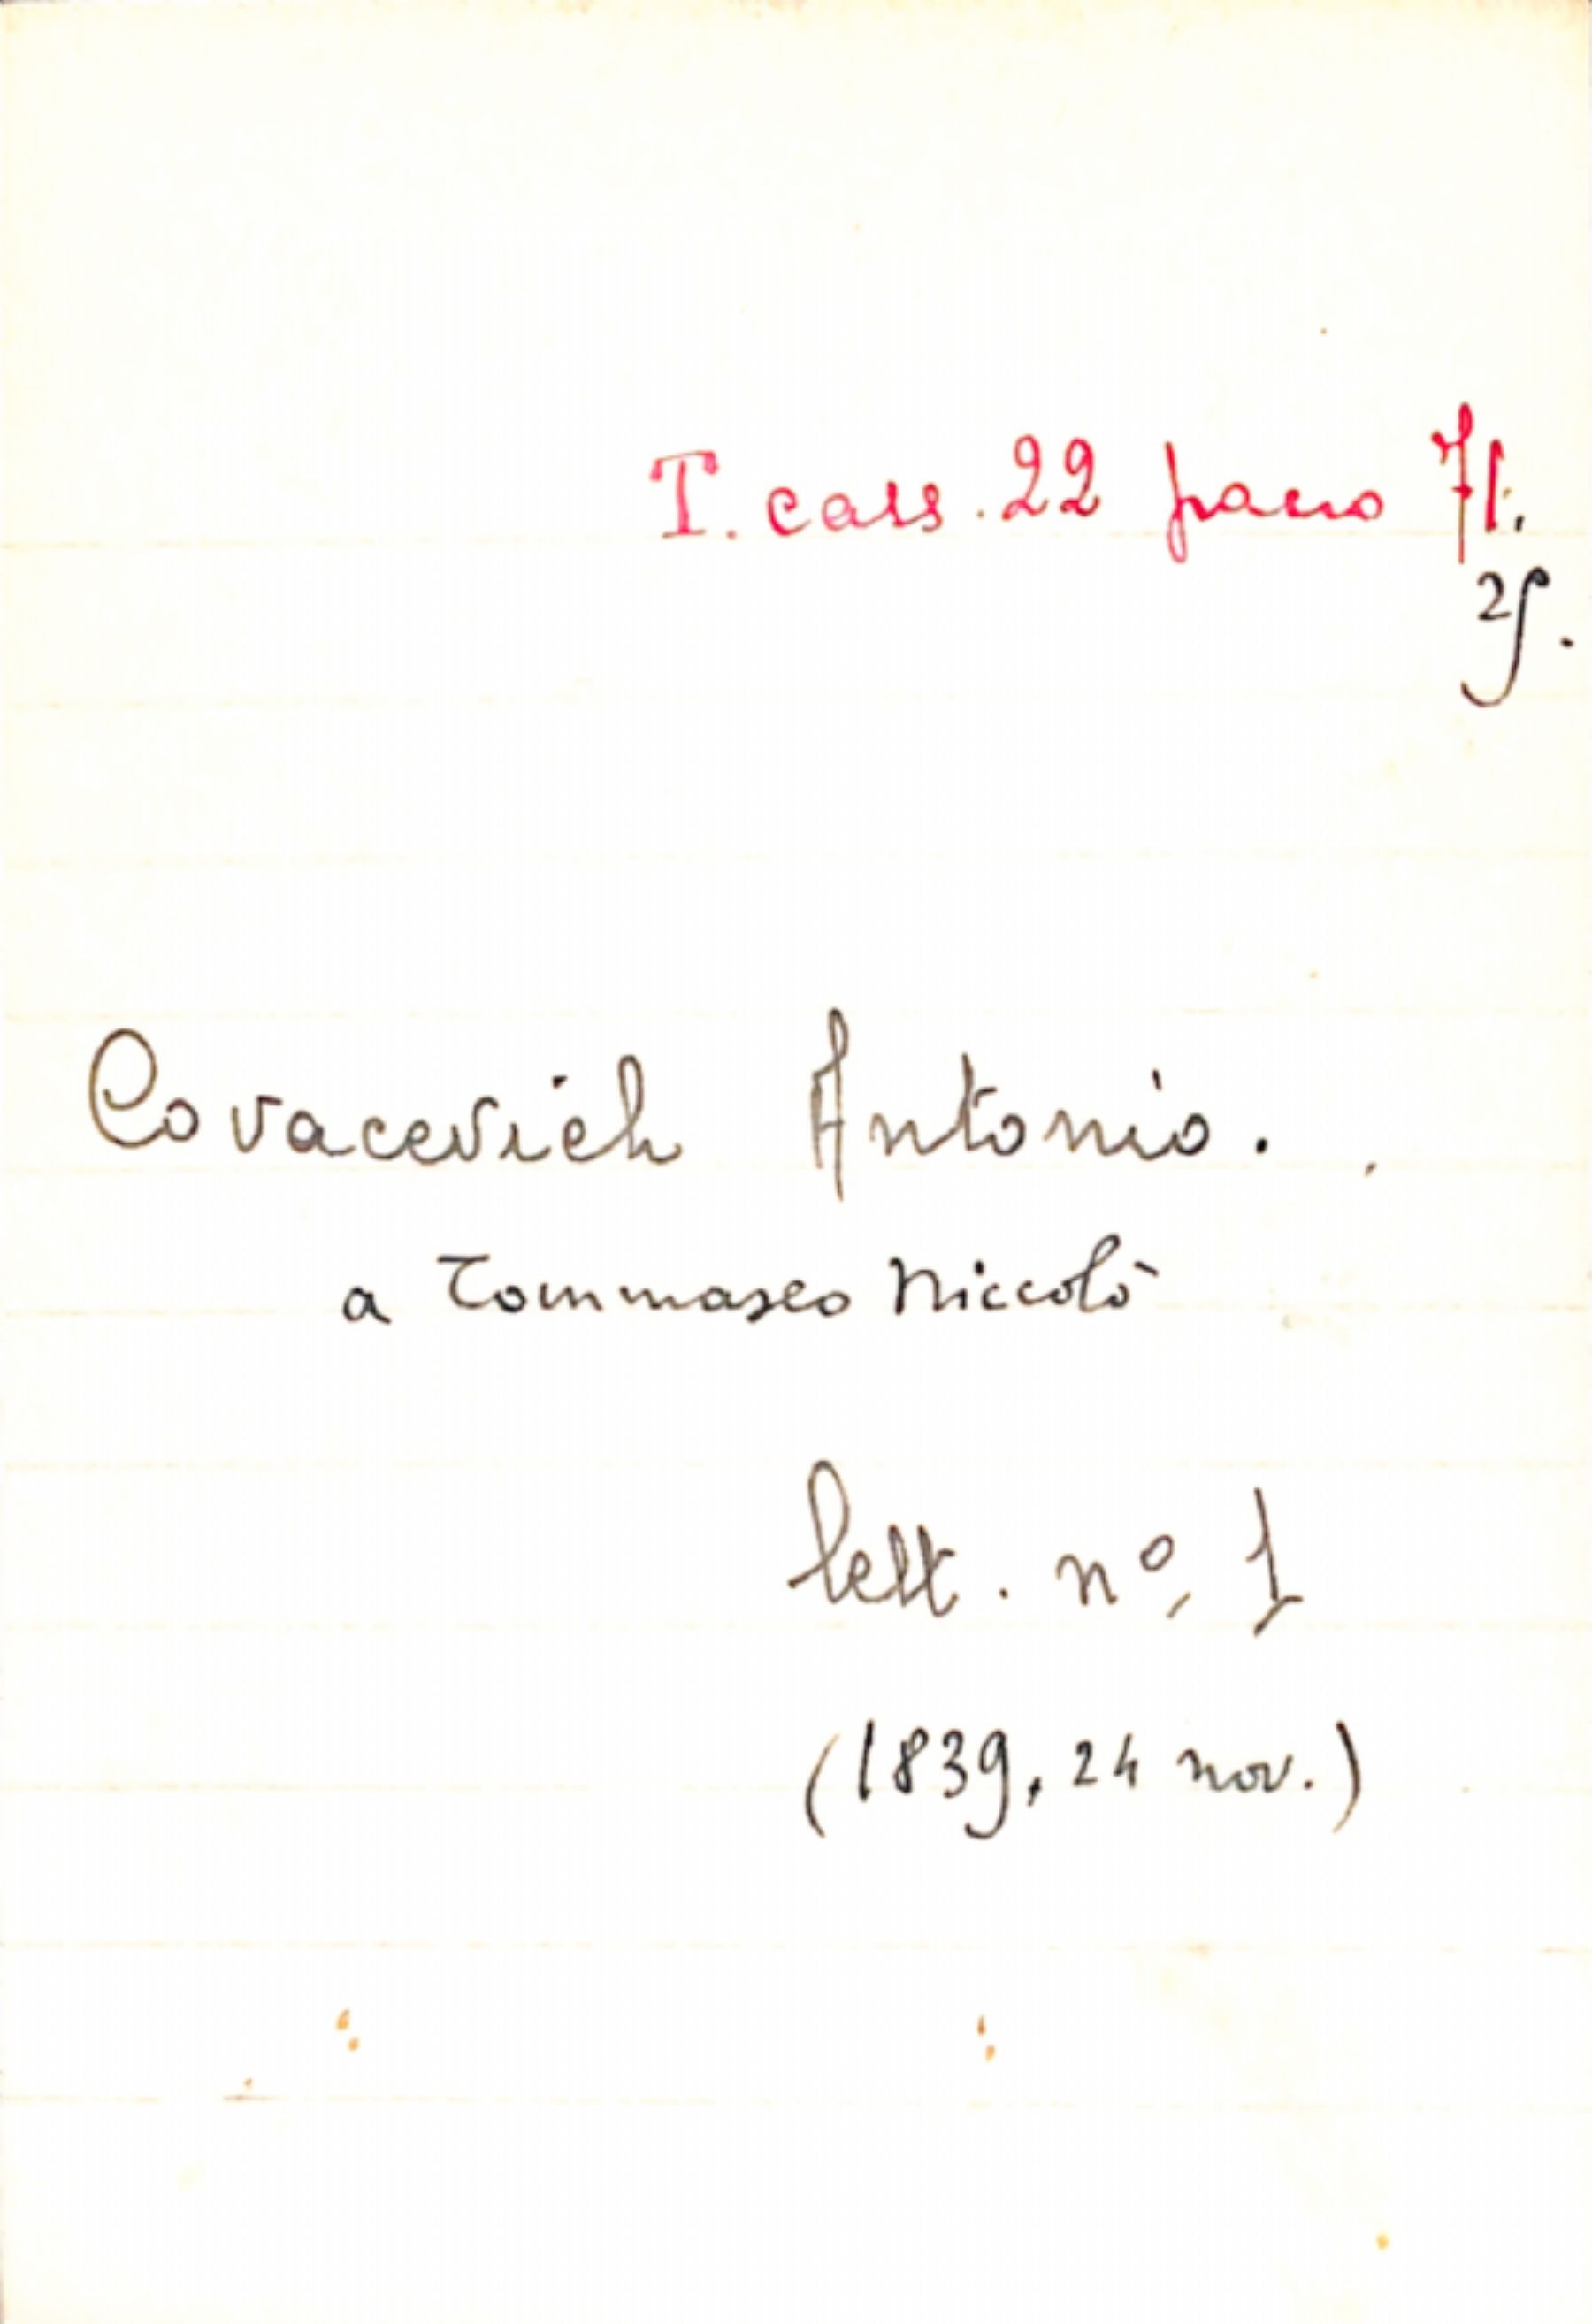 T. cass. 22 pacco 71.
25.
Covacevich Antonio.
a Tommaseo Niccolò
lett. nº, 1
(1839, 24 nov.)